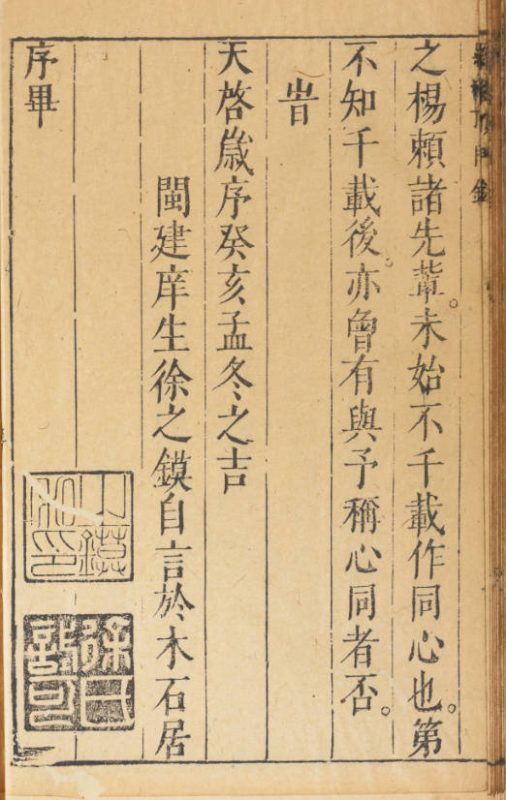 之楊賴諸先輩。未始不千載作同心也。第
不知千載後。亦曾有與予稱心同者否。
旹
天啓歲序癸亥孟冬之吉
閩建庠生徐之鏌自言於木石居
序畢